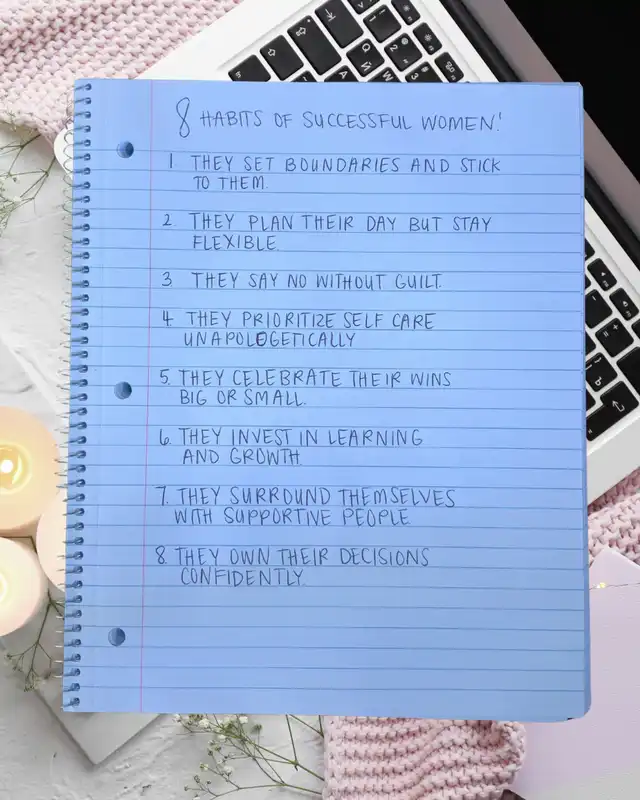 8 HABITS OF SUCCESSFUL WOMEN!
1 THEY SET BOUNDARIES AND STICK
TO THEM.
2. THEY PLAN THEIR DAY BUT STAY
FLEXIBLE.
3 THEY SAY NO WITHOUT GUILT.
4. THEY PRIORITIZE SELF CARE
UNAPOLOGETICALLY
5. THEY CELEBRATE THEIR WINS
BIG OR SMALL.
6. THEY INVEST IN LEARNING
AND GROWTH.
7. THEY SURROUND THEMSELVES
WITH SUPPORTIVE PEOPLE.
8. THEY OWN THEIR DECISIONS
CONFIDENTLY.